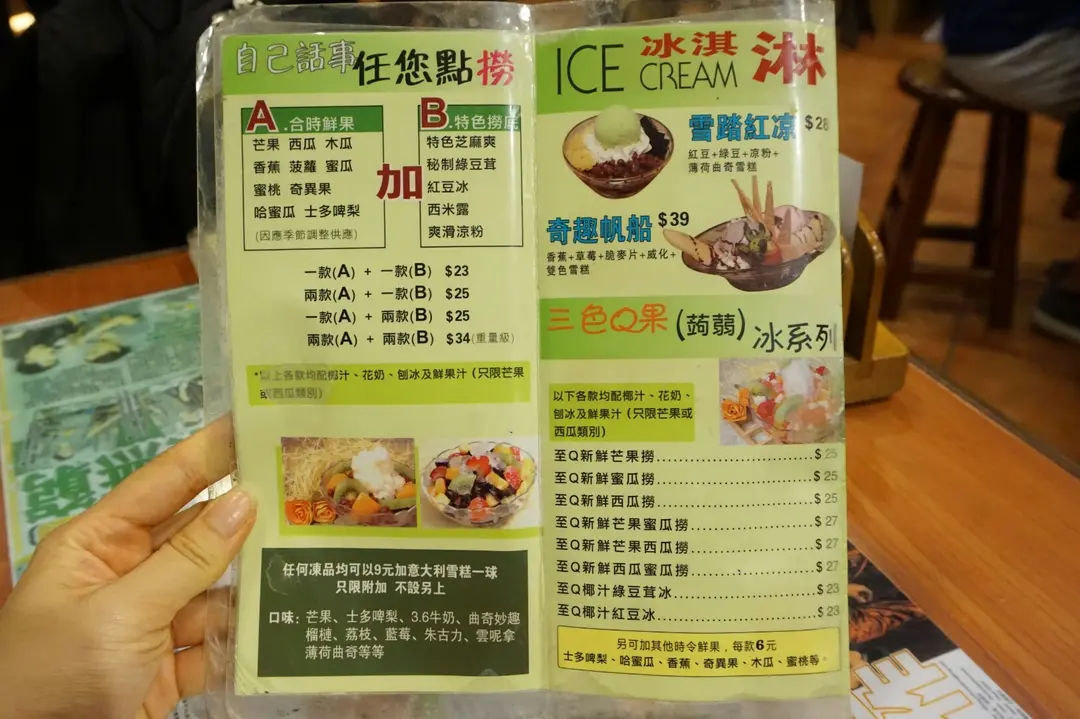 自己話事任您點撈
A.合時鮮果
芒果 西瓜 木瓜
香蕉 菠蘿 蜜瓜
蜜桃 奇異果
哈蜜瓜 士多啤梨
(因應季節調整供應)
加
B.特色撈底
特色芝麻爽
秘制綠豆茸
紅豆冰
西米露
爽滑涼粉
一款(A) + 一款(B) $23
兩款(A) + 一款(B) $25
一款(A) + 兩款(B) $25
兩款(A) + 兩款(B) $34(重量級)
*以上各款均配椰汁、花奶、刨冰及鮮果汁(只限芒果
或西瓜類別)
任何凍品均可以9元加意大利雪糕一球
只限附加 不設另上
口味：芒果、士多啤梨、3.6牛奶、曲奇妙趣
榴槤、荔枝、藍莓、朱古力、雲呢拿
薄荷曲奇等等
ICE CREAM 冰淇淋
雪踏紅凉 $28
紅豆+綠豆+凉粉+
薄荷曲奇雪糕
奇趣帆船 $39
香蕉+草莓+脆麥片+威化+
雙色雪糕
三色Q果(蒟蒻)冰系列
以下各款均配椰汁、花奶、
刨冰及鮮果汁(只限芒果或
西瓜類別)
至Q新鮮芒果撈 $25
至Q新鮮蜜瓜撈 $25
至Q新鮮西瓜撈 $25
至Q新鮮芒果蜜瓜撈 $27
至Q新鮮芒果西瓜撈 $27
至Q新鮮西瓜蜜瓜撈 $27
至Q椰汁綠豆茸冰 $23
至Q椰汁紅豆冰 $23
另可加其他時令鮮果，每款6元
士多啤梨、哈蜜瓜、香蕉、奇異果、木瓜、蜜桃等。